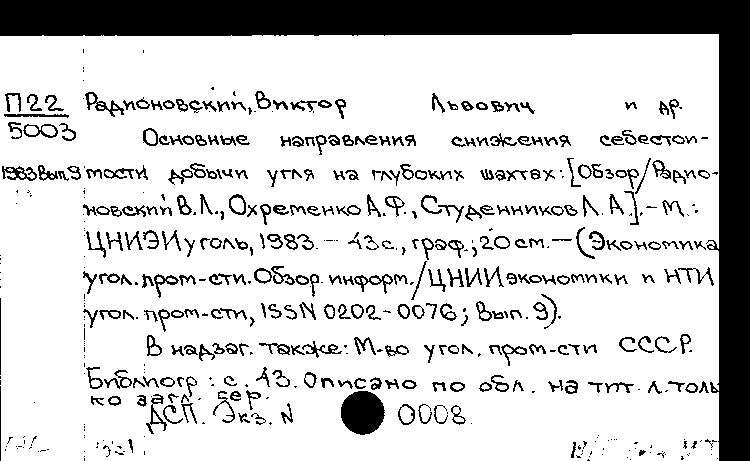 П22 Радионовский, Виктор Львович и др.
5003 Основные направления снижения себестои-
1983 Вып. 9 мости добычи угля на глубоких шахтах: [Обзор/Радио-
новский В.Л., Охременко А.Ф., Студенников Л.А.]. - М.:
ЦНИЭИуголь, 1983. - 43с., граф.; 20см. - (Экономика
угол. пром-сти. Обзор. информ./ЦНИИ экономики и НТИ
угол. пром-сти, ISSN 0202-0076; Вып. 9).
В надзаг. также: М-во угол. пром-сти СССР.
Библиогр.: с. 43. Описано по обл. на тит. л. толь
ко загл. сер.
ДСП. Экз. N 0008